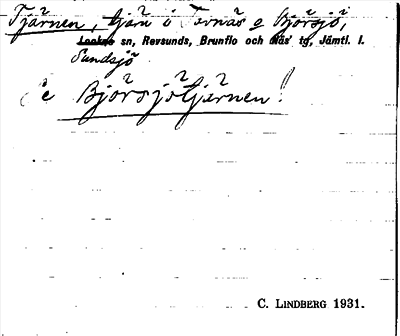 Tjärnen, tjärn i Tornäs o Björsjö,
Lockne sn, Revsunds, Brunflo och Näs' tg, Jämtl. l.
Sundsjö
Se Björsjötjärnen!
C. LINDBERG 1931.